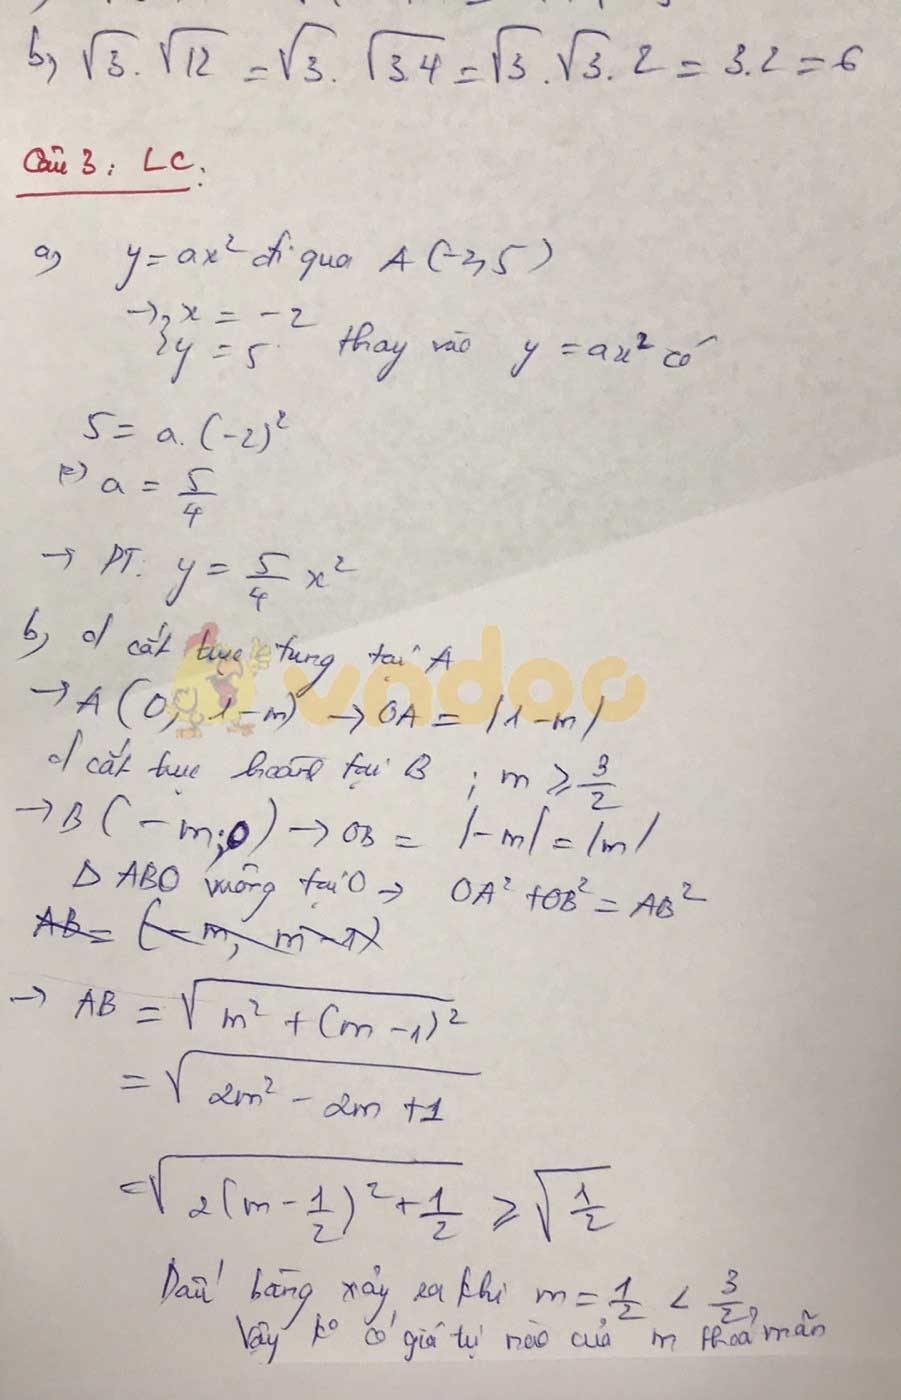 b, √3 . √12 = √3 . √3.4 = √3 . √3 . 2 = 3.2 = 6
Câu 3: LC:
a, y = ax² đi qua A (-2,5)
→ { x = -2
{ y = 5 thay vào y = ax² có
5 = a. (-2)²
(=) a = 5/4
→ PT: y = 5/4 x²
b, d cắt trục tung tại A
vndoc
→ A (0, 1-m) → OA = |1-m|
d cắt trục hoành tại B ; m ≥ 3/2
→ B (-m; 0) → OB = |-m| = |m|
Δ ABO vuông tại O → OA² + OB² = AB²
AB = (-m, m-1)
→ AB = √m² + (m-1)²
= √2m² - 2m + 1
= √2(m - 1/2)² + 1/2 ≥ √1/2
Dấu bằng xảy ra khi m = 1/2 < 3/2,
Vậy ko có giá trị nào của m thoả mãn